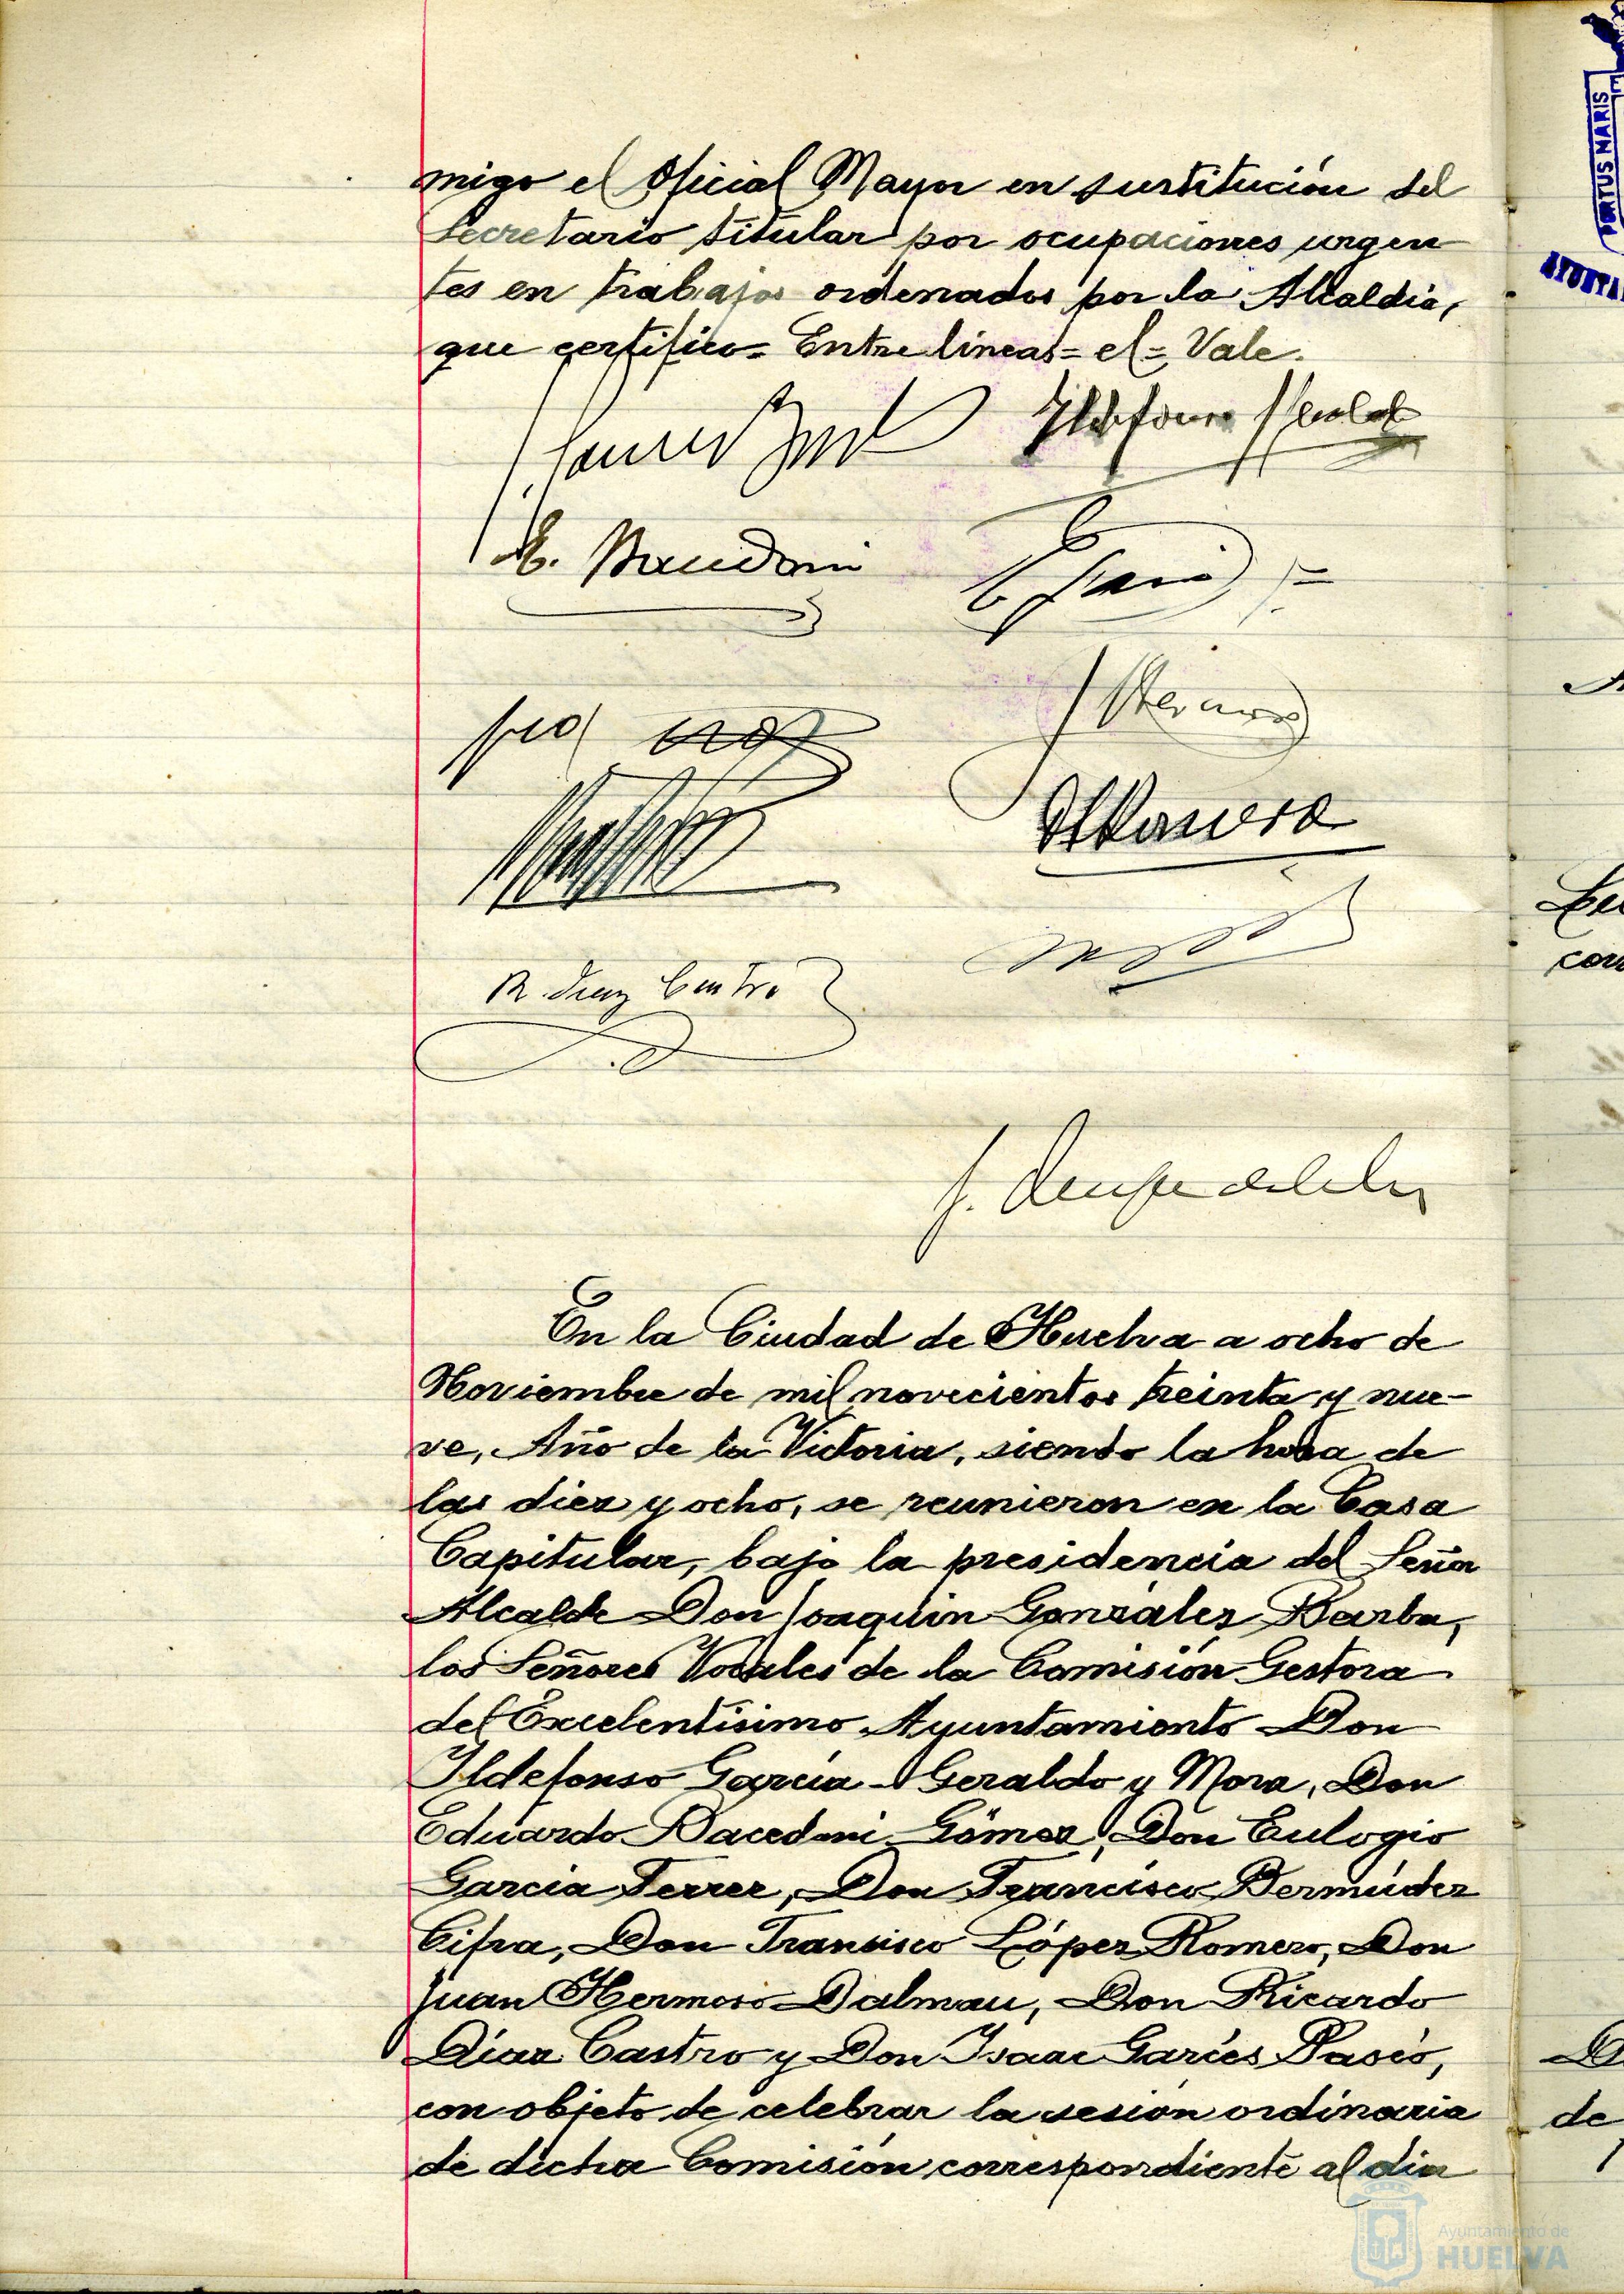 migo el Oficial Mayor en sustitución del
Secretario titular por ocupaciones urgen
tes en trabajos ordenados por la Alcaldía,
que certifico= Entre lineas= el= Vale.
R. Diaz Castro
En la Ciudad de Huelva a ocho de
Noviembre de mil novecientos treinta y nue-
ve, Año de la Victoria, siendo la hora de
las diez y ocho, se reunieron en la Casa
Capitular, bajo la presidencia del Señor
Alcalde Don Joaquin González Barba,
los Señores Vocales de la Comisión Gestora
del Excelentísimo Ayuntamiento Don
Ildefonso García Geraldo y Mora, Don
Eduardo Gómez, Don Eulogio
Garcia Ferrer, Don Francisco Bermúdez
Cifra, Don Francisco López Romero, Don
Juan Hermoso Dalmau, Don Ricardo
Díaz Castro y Don Isaac Garcés
con objeto de celebrar la sesión ordinaria
de dicha Comisión correspondiente al día
PORTUS MARIS
de
Ayuntamiento de
HUELVA